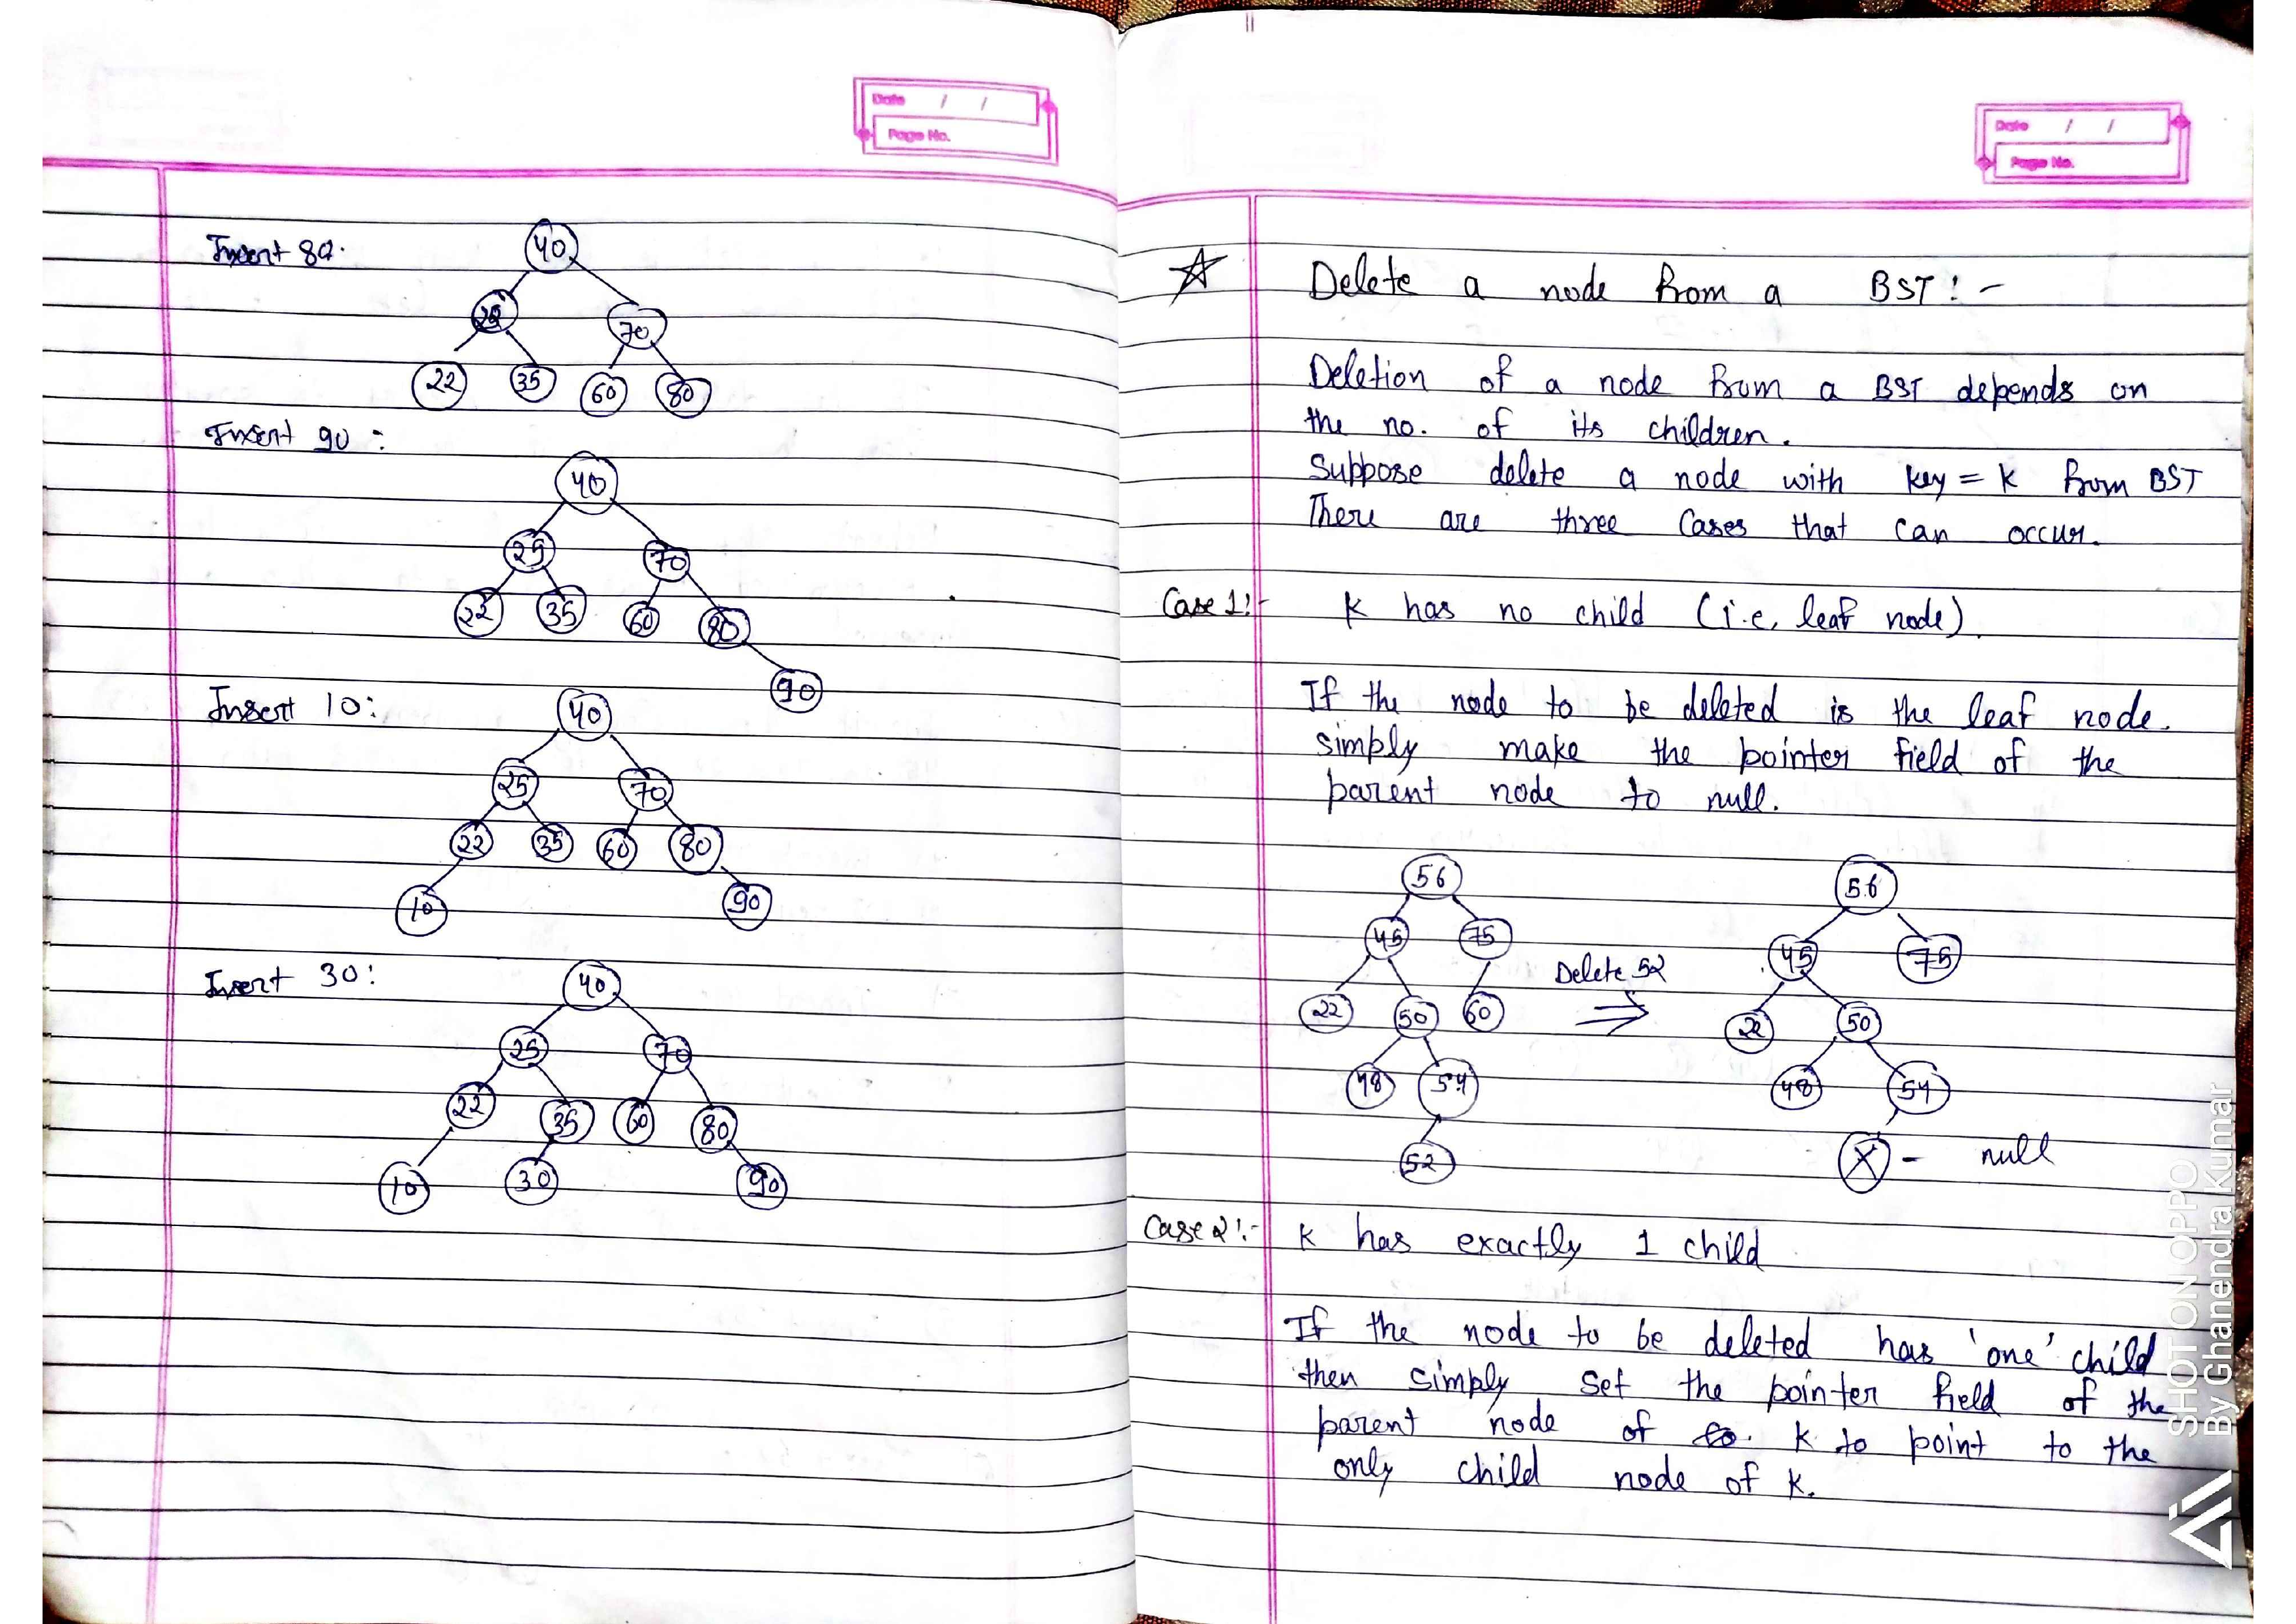 Date / /
Page No.
Insert 80:
40
25
70
22 35 60 80
Insert 90:
40
25 70
22 35 60 80
90
Insert 10:
40
25 70
22 35 60 80
10 90
Insert 30:
40
25 70
22 35 60 80
10 30 90
Date / /
Page No.
Delete a node from a BST:-
Deletion of a node from a BST depends on
the no. of its children.
Suppose delete a node with key = k from BST
There are three Cases that can occur.
Case 1:- K has no child (i.e, leaf node).
If the node to be deleted is the leaf node.
simply make the pointer field of the
parent node to null.
56
45 75
22 50 60
48 54
52
Delete 52
⇒
56
45 75
22 50
48 54
X - null
Case 2:- K has exactly 1 child
If the node to be deleted has 'one' child
then simply set the pointer field of the
parent node of K to point to the
only child node of K.
SHOT ON OPPO
By Ghanendra Kumar